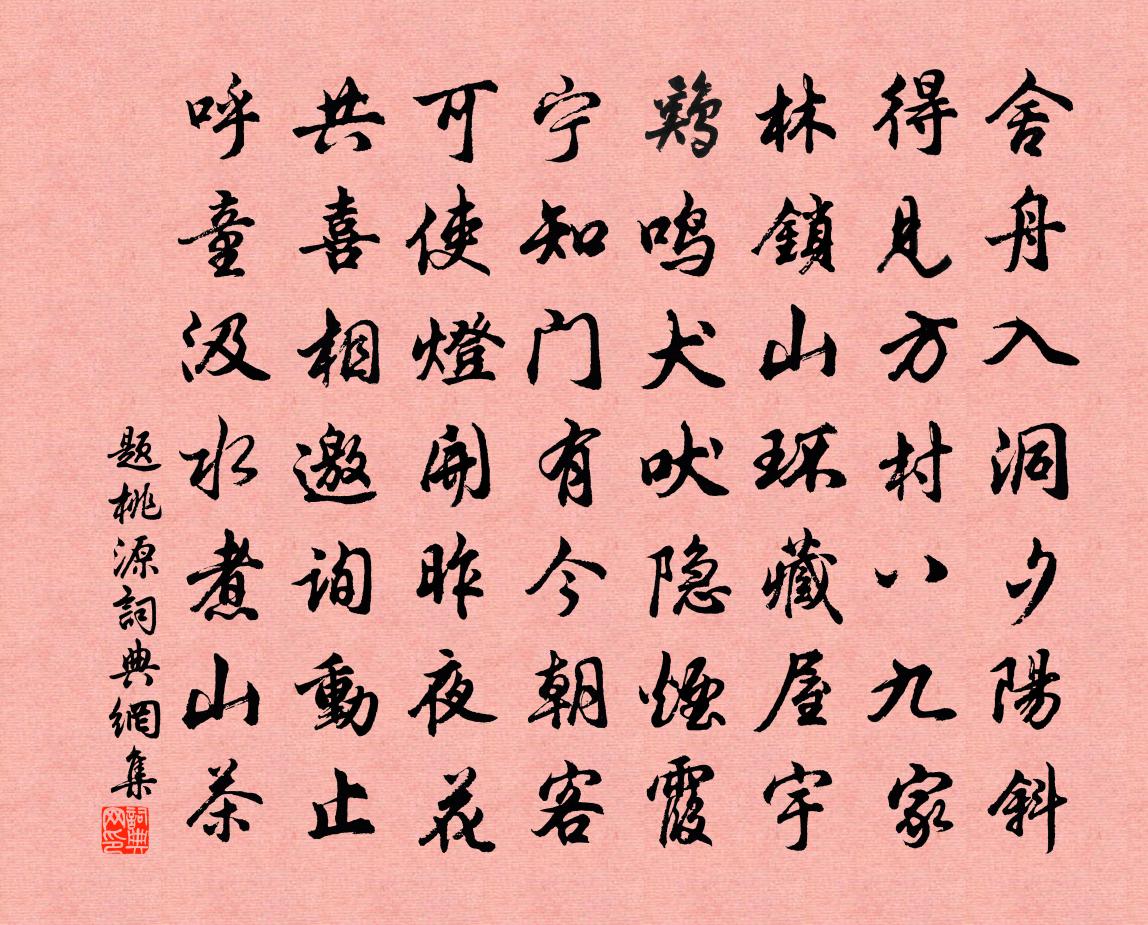 舍舟入洞夕陽斜
得見方村八九家
林鎖山环藏屋宇
鷄鸣犬吠隐煙霞
宁知门有今朝客
可使燈開昨夜花
共喜相邀询動止
呼童汲水煮山茶
题桃源詞典網集
詞典网印